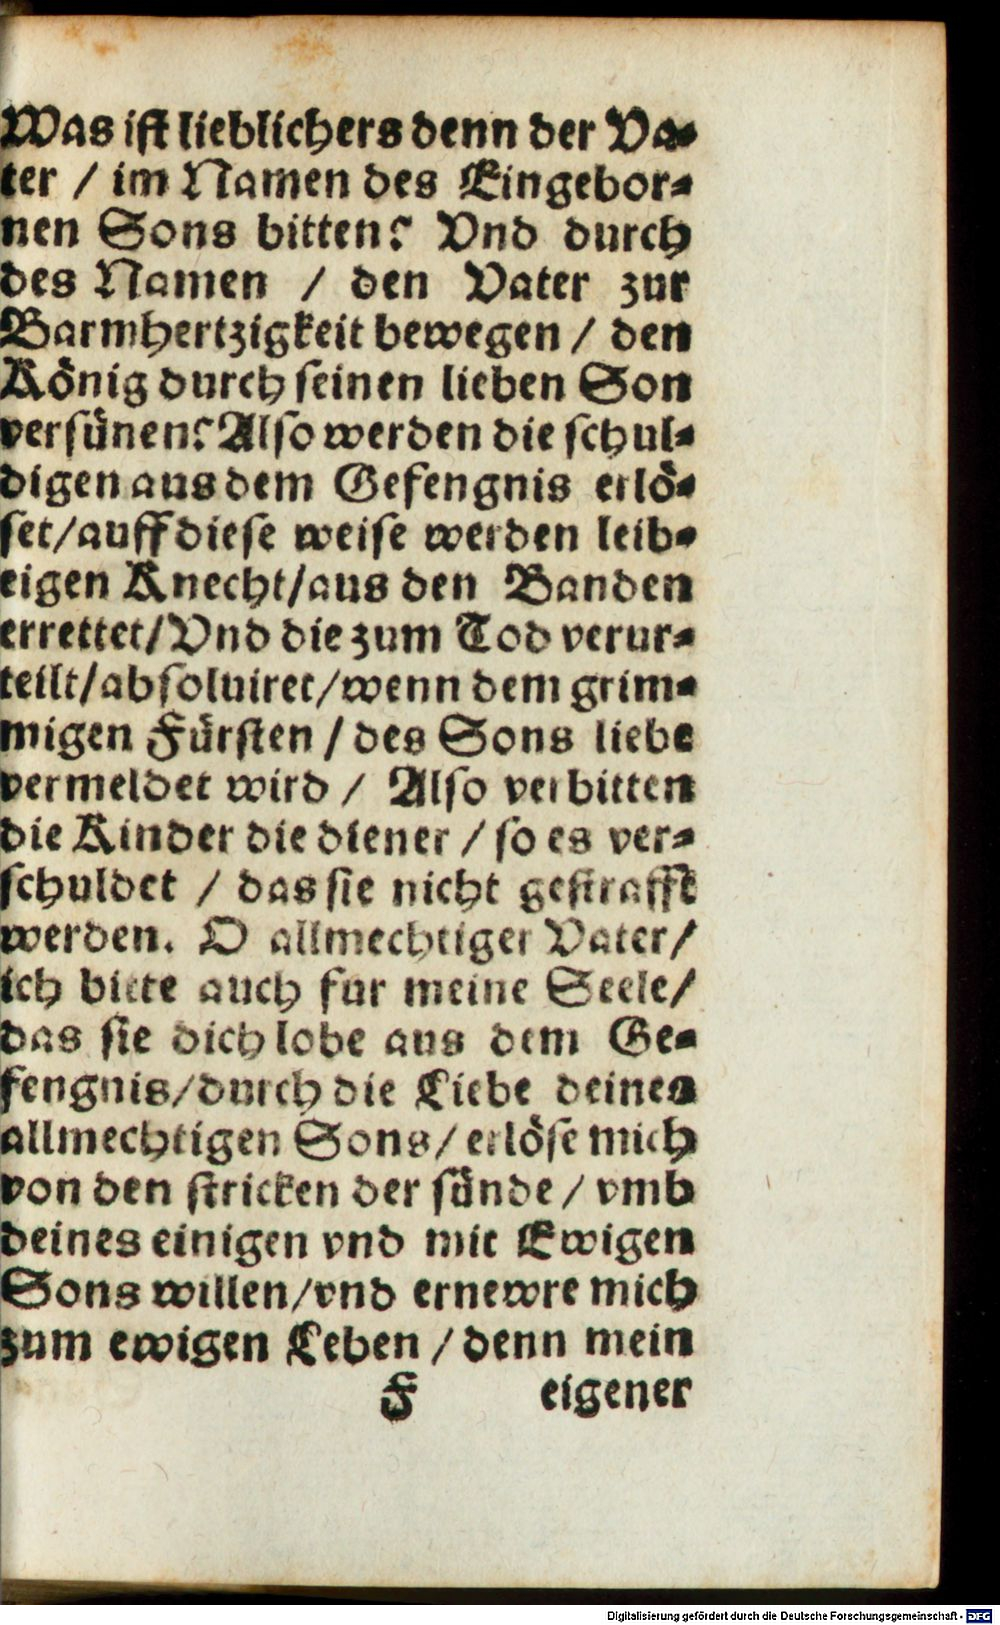 Was ist lieblichers denn der Va-
ter / im Namen des Eingebor-
nen Sons bitten? Vnd durch
des Namen / den Vater zur
Barmhertzigkeit bewegen / den
König durch seinen lieben Son
versünen? Also werden die schul-
digen aus dem Gefengnis erlö-
set/auff diese weise werden leib-
eigen Knecht/aus den Banden
errettet/Vnd die zum Tod verur-
teilt/absoluiret/wenn dem grim-
migen Fürsten / des Sons liebe
vermeldet wird / Also verbitten
die Kinder die diener / so es ver-
schuldet / das sie nicht gestrafft
werden. O allmechtiger Vater/
ich bitte auch fur meine Seele/
das sie dich lobe aus dem Ge-
fengnis/durch die Liebe deines
allmechtigen Sons/ erlöse mich
von den stricken der sünde / vmb
deines einigen vnd mit Ewigen
Sons willen/vnd ernewre mich
zum ewigen Leben / denn mein
F eigener
Digitalisierung gefördert durch die Deutsche Forschungsgemeinschaft - DFG